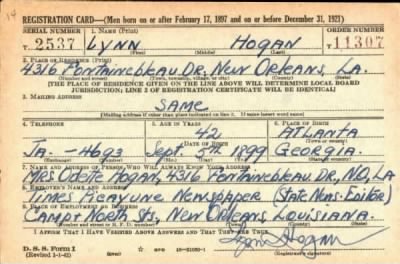 14
REGISTRATION CARD—(Men born on or after February 17, 1897 and on or before December 31, 1921)
SERIAL NUMBER 1. NAME (Print) ORDER NUMBER
T 2537 LYNN HOGAN T 11307
(First) (Middle) (Last)
2. PLACE OF RESIDENCE (Print)
4316 FONTAINEBLEAU DR. NEW ORLEANS, LA.
(Number and street) (Town, township, village, or city) (County) (State)
[THE PLACE OF RESIDENCE GIVEN ON THE LINE ABOVE WILL DETERMINE LOCAL BOARD
JURISDICTION; LINE 2 OF REGISTRATION CERTIFICATE WILL BE IDENTICAL]
3. MAILING ADDRESS
SAME
[Mailing address if other than place indicated on line 2. If same insert word same]
4. TELEPHONE 5. AGE IN YEARS 6. PLACE OF BIRTH
42 ATLANTA
DATE OF BIRTH (Town or county)
Ja- -4693 Sept. 5th 1899 GEORGIA.
7. NAME AND ADDRESS OF PERSON WHO WILL ALWAYS KNOW YOUR ADDRESS
MRS Odette Hogan, 4316 FONTAINEBLEAU DR, N.O, LA
8. EMPLOYER'S NAME AND ADDRESS
TIMES PICAYUNE NEWSPAPER (STATE NEWS-EDITOR)
9. PLACE OF EMPLOYMENT OR BUSINESS
CAMP & NORTH STS, NEW ORLEANS, LOUISIANA.
I AFFIRM THAT I HAVE VERIFIED ABOVE ANSWERS AND THAT THEY ARE TRUE.
D. S. S. Form 1
(Revised 1-1-42)
Lynn Hogan